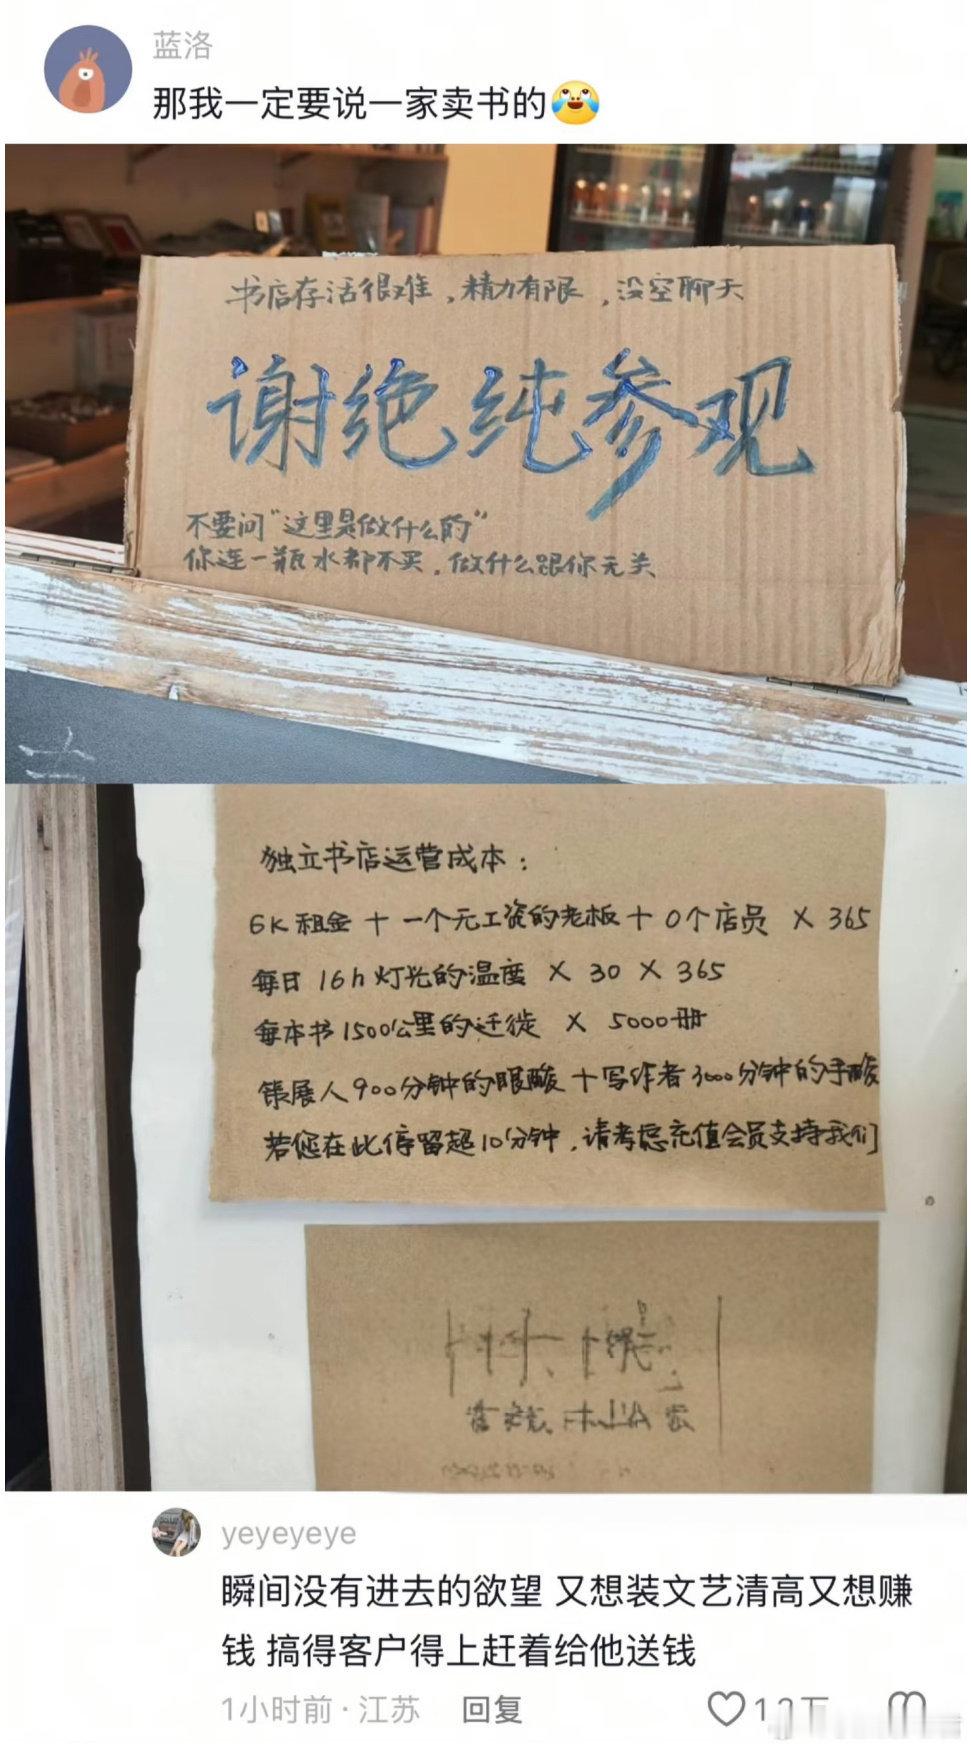 蓝洛
那我一定要说一家卖书的
书店存活很难，精力有限，没空聊天
谢绝纯参观
不要问“这里是做什么的”
你连一瓶水都不买，做什么跟你无关
独立书店运营成本：
6K租金＋一个无工资的老板＋0个店员 × 365
每日 16h 灯光的温度 × 30 × 365
每本书1500公里的迁徙 × 5000册
策展人900分钟的眼酸＋写作者3000分钟的手酸
若您在此停留超10分钟，请考虑充值会员支持我们
yeyeyeye
瞬间没有进去的欲望 又想装文艺清高又想赚
钱 搞得客户得上赶着给他送钱
1小时前·江苏 回复